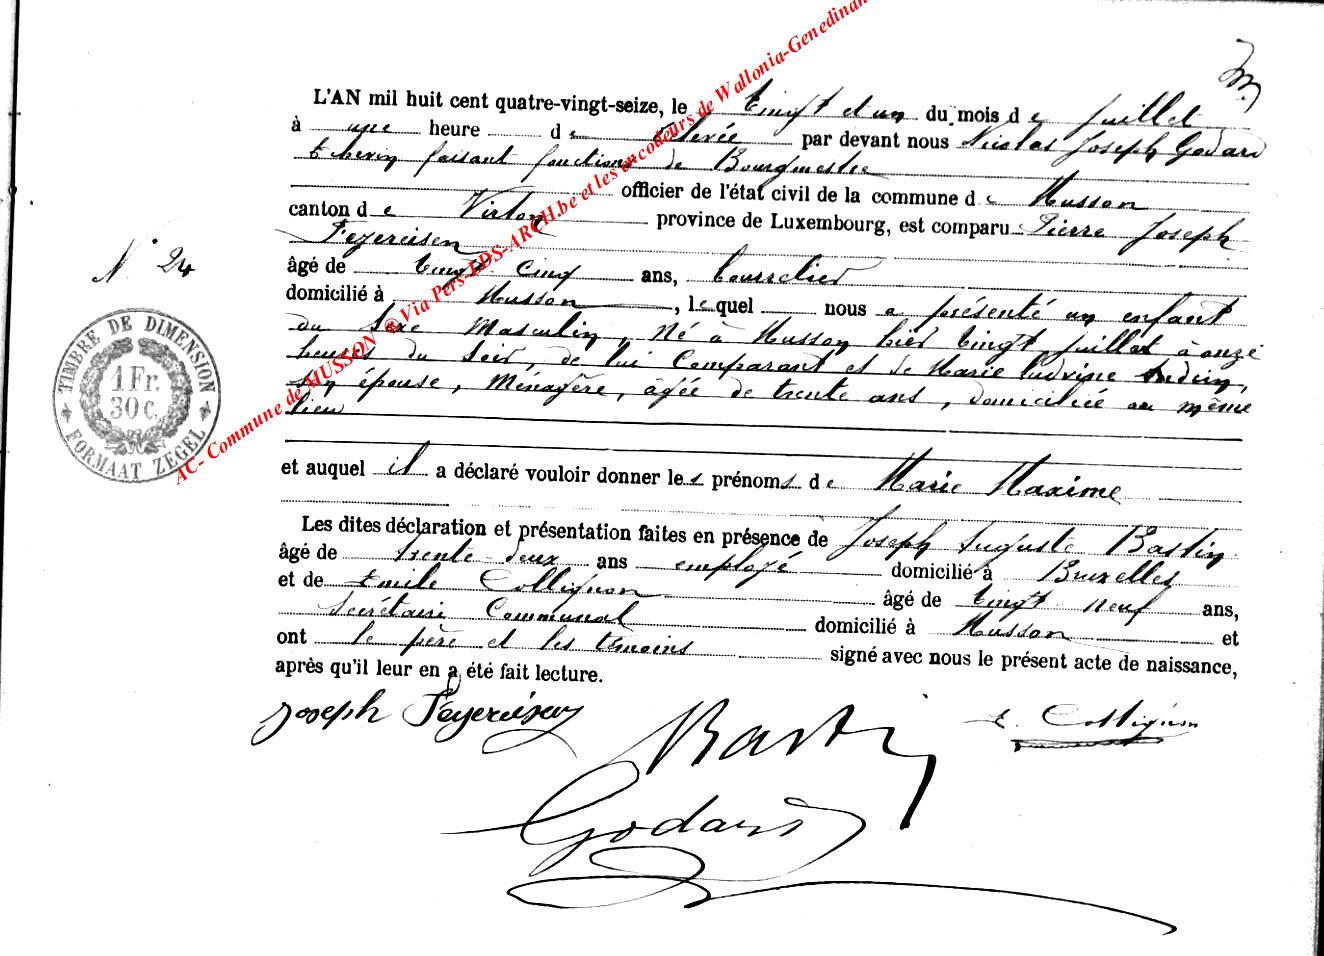 L'AN mil huit cent quatre-vingt-seize, le vingt et un du mois de Juillet
à une heure de relevée par devant nous Nicolas Joseph Godard
Echevin faisant fonctions de Bourgmestre
officier de l'état civil de la commune de Musson
canton de Virton province de Luxembourg, est comparu Pierre Joseph
Feyereisen
âgé de vingt cinq ans, bourrelier
domicilié à Musson, lequel nous a présenté un enfant
du sexe Masculin, né à Musson hier vingt Juillet à onze
heures du soir, de lui Comparant et de Marie
son épouse, Ménagère, agée de trente ans, domiciliée au même
lieu
et auquel il a déclaré vouloir donner les prénoms de Marie Maxime
Les dites déclaration et présentation faites en présence de Joseph Auguste Bastin
âgé de trente deux ans employé domicilié à Bruxelles
et de Emile Collignon âgé de vingt neuf ans,
Secrétaire Communal domicilié à Musson et
ont le père et les témoins signé avec nous le présent acte de naissance,
après qu'il leur en a été fait lecture.
Joseph Feyereisen Bastin E. Collignon
Godard
N° 24
TIMBRE DE DIMENSION
1 Fr.
30 C.
FORMAAT ZEGEL
AC- Commune de MUSSON ©Via Pers-EDS-ARCH.be et les encodeurs de Wallonia-Genedinan